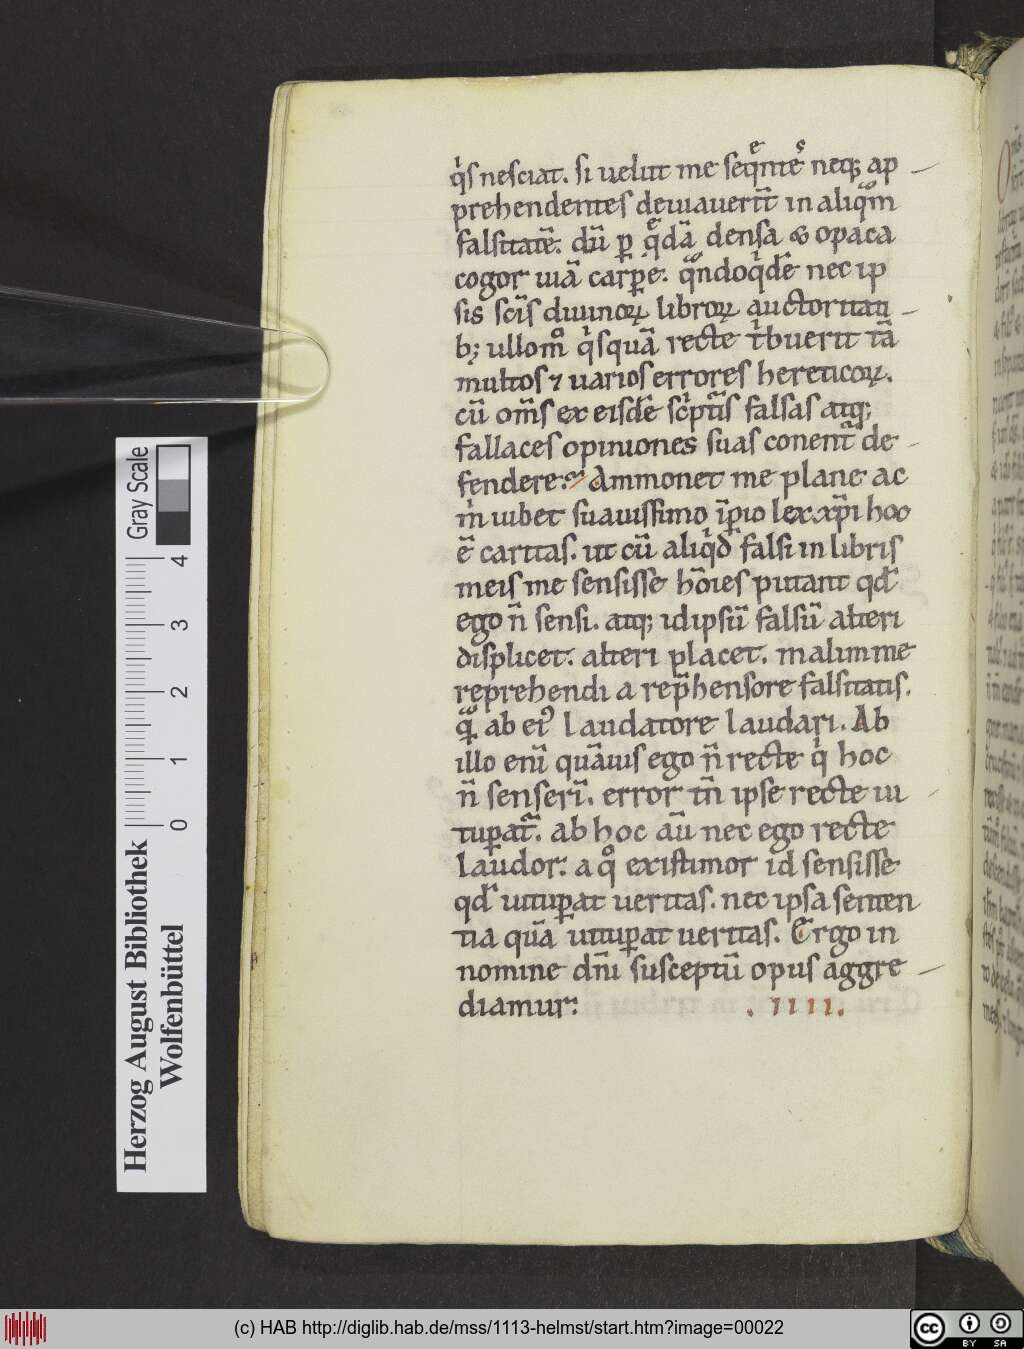 q̍s nesciat. si uelut me seq̄ntes neq; ap
prehendentes deuiauerīt in aliq̄m
falsitatē. dū ꝑ q̄dā densa & opaca
cogor uiā carꝑe. q̄ndoq̍dē nec ip
sis scīs diuinoꝝ libroꝝ auctoritati
b; ullom̊ q̍squā recte t̍buerit tā
multos ⁊ uarios errores hereticoꝝ.
cū om̄s ex eisdē sc̍ptīs falsas atq;
fallaces opiniones suas conent̄ de
fendere. Ammonet me plane ac
m̍ iubet suauissimo īꝑio lex xp̄i hoc
ē caritas. ut cū aliq̍d falsi in libris
meis me sensisse hōies putant qd̄
ego n̄ sensi. atq; idipsū falsū alteri
displicet. alteri placet. malim me
reprehendi a rep̄hensore falsitatis.
q̄ ab ei' laudatore laudari. Ab
illo enī quāuis ego n̄ recte q̍ hoc
n̄ senserī. error tn̄ ipse recte ui
tuꝑat̄. ab hoc aū nec ego recte
laudor. a q̊ existimor id sensisse
qd̄ uituꝑat ueritas. nec ipsa senten
tia quā uituꝑat ueritas. Ergo in
nomine dn̄i susceptū opus aggre
diamur.
.IIII.
Gray Scale
4 3 2 1 0
Herzog August Bibliothek
Wolfenbüttel
(c) HAB http://diglib.hab.de/mss/1113-helmst/start.htm?image=00022
cc BY SA